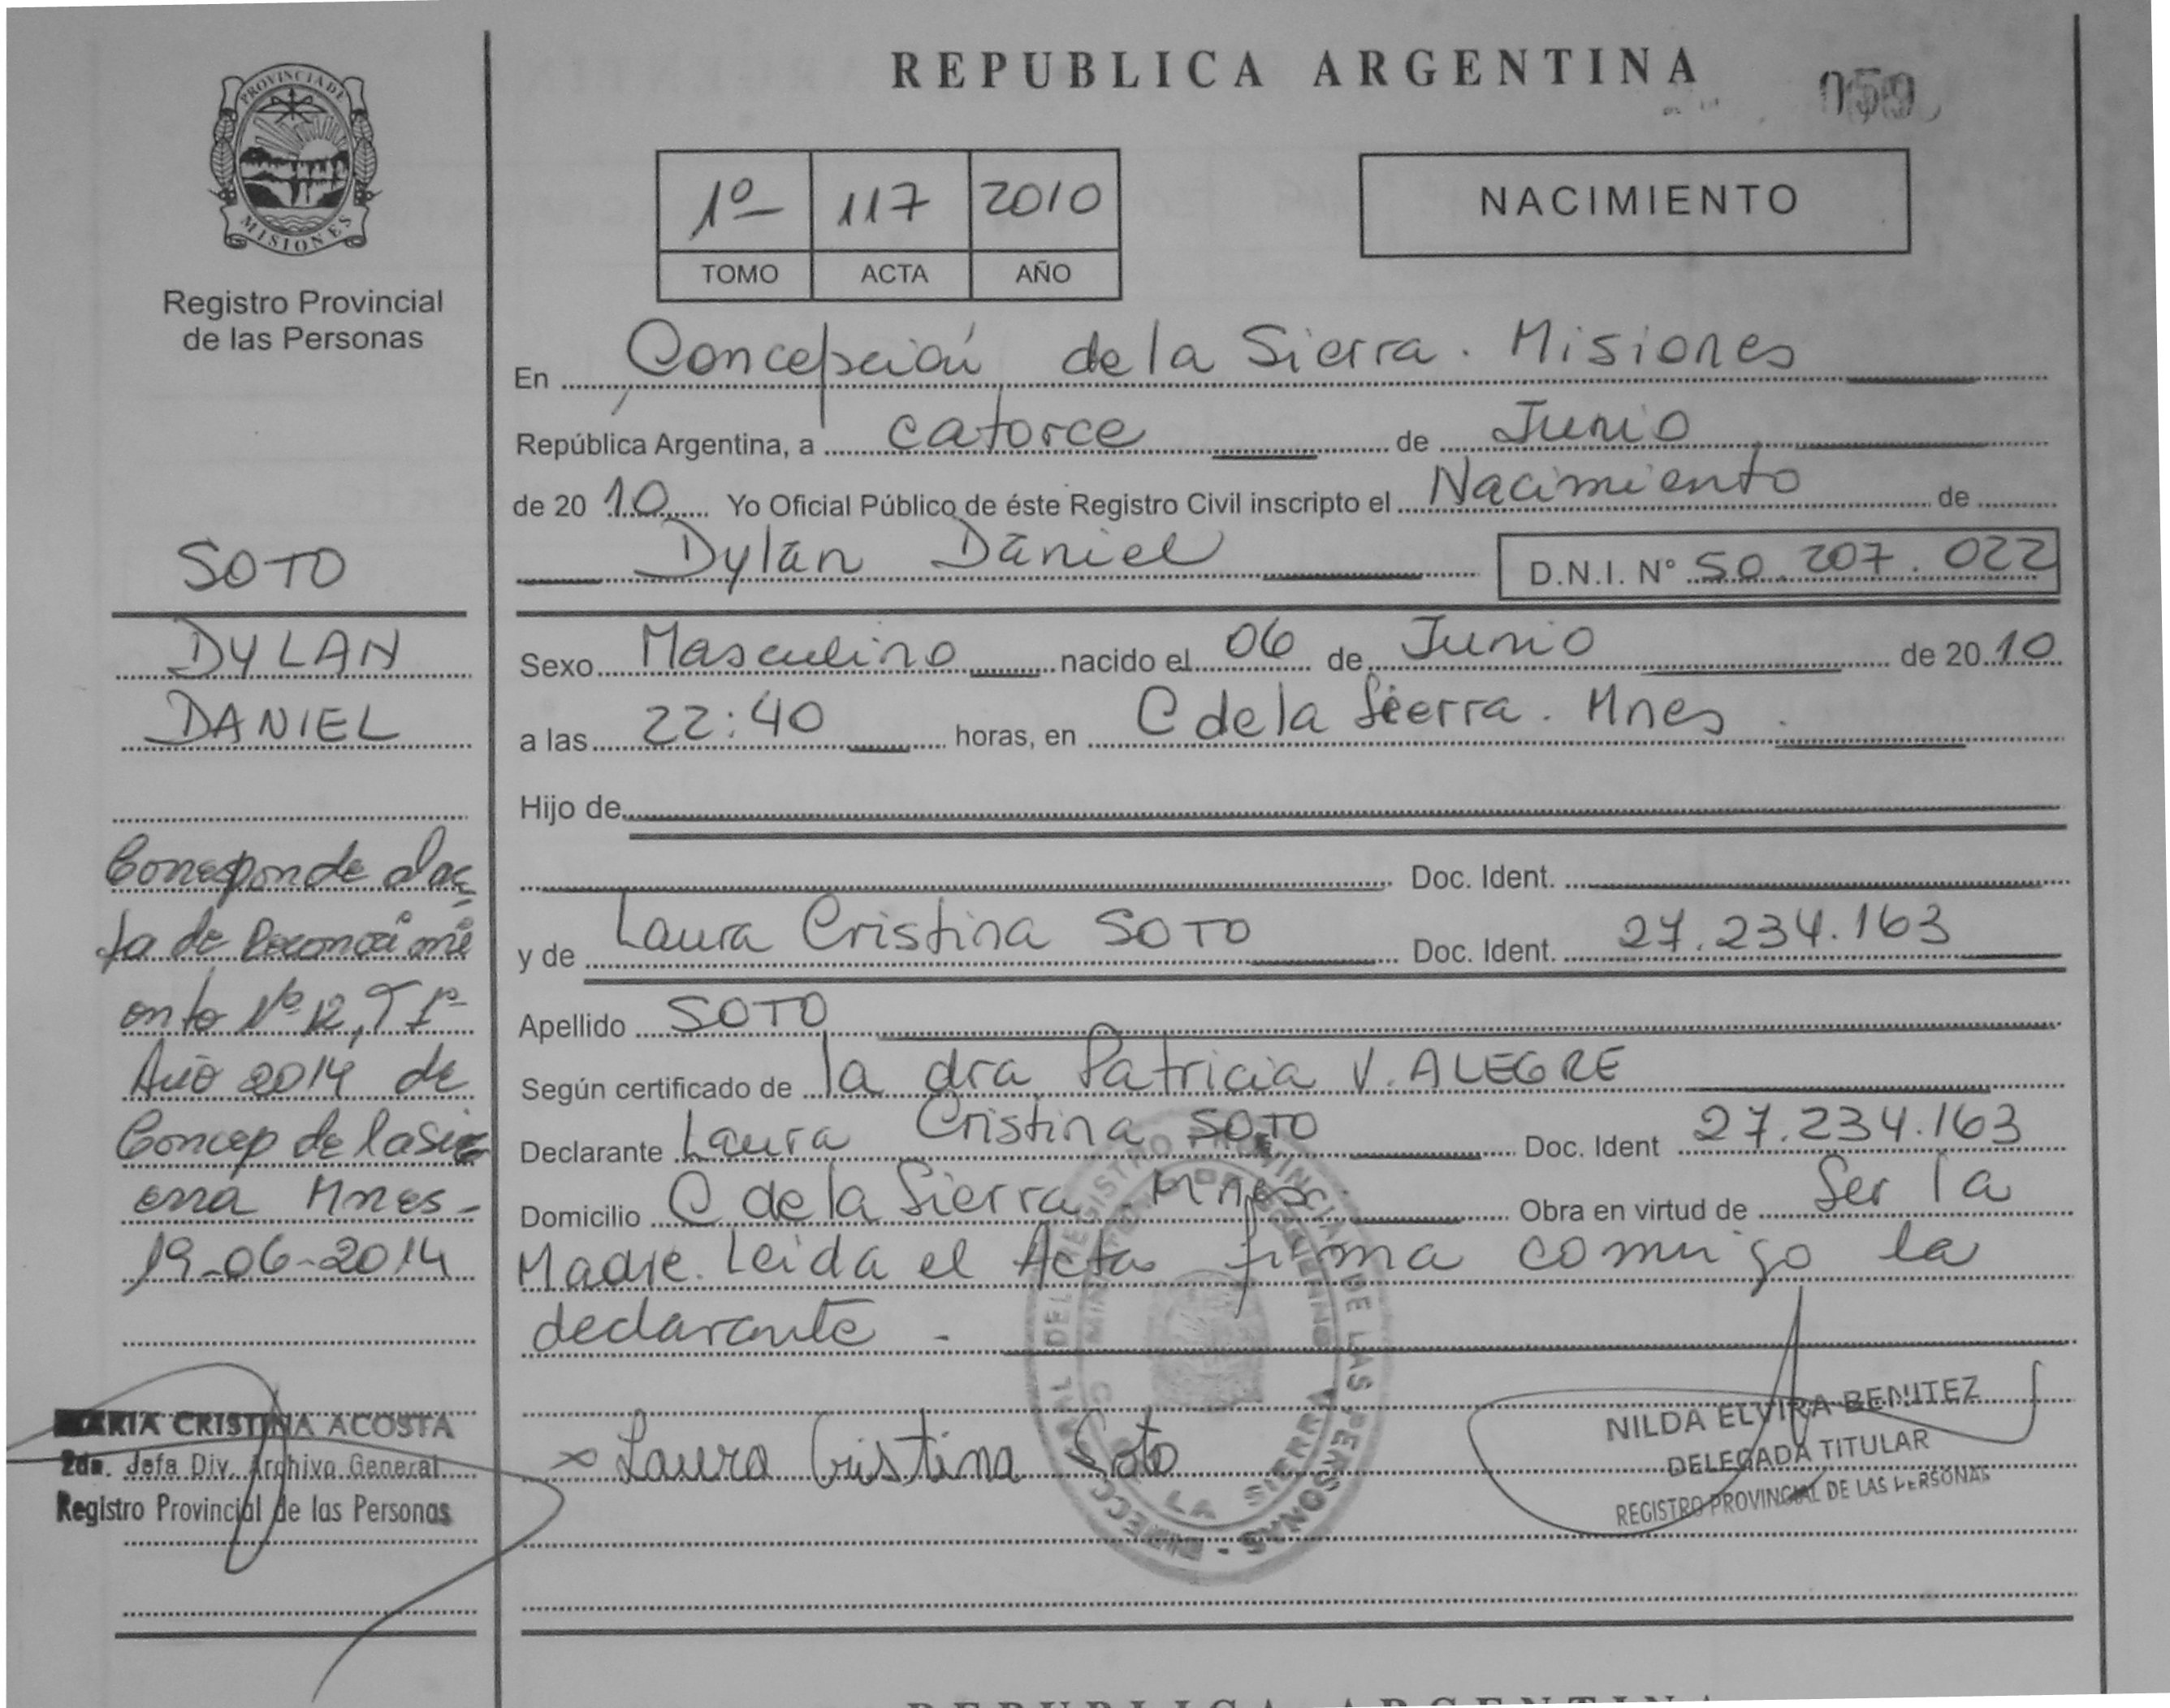 REPUBLICA ARGENTINA
059
PROVINCIA DE
MISIONES
Registro Provincial
de las Personas
1º 117 2010
TOMO ACTA AÑO
NACIMIENTO
En Concepción de la Sierra. Misiones
República Argentina, a catorce de Junio
de 2010 Yo Oficial Público de éste Registro Civil inscripto el Nacimiento de
Dylan Daniel D.N.I. Nº 50.207.022
Sexo Masculino nacido el 06 de Junio de 2010
a las 22:40 horas, en C de la Sierra. Mnes.
Hijo de
Doc. Ident.
y de Laura Cristina SOTO Doc. Ident. 27.234.163
Apellido SOTO
Según certificado de la dra Patricia V. ALEGRE
Declarante Laura Cristina SOTO Doc. Ident 27.234.163
Domicilio C de la Sierra Mnes Obra en virtud de Ser la
Madre. Leida el Acta firma comigo la
declarante -
x Laura Cristina Soto
NILDA ELVIRA BENITEZ
DELEGADA TITULAR
REGISTRO PROVINCIAL DE LAS PERSONAS
SOTO
DYLAN
DANIEL
Corresponde al ac
ta de Reconocimi
ento Nº 12, T 1º
Año 2014 de
Concep de la Si
erra Mnes-
19-06-2014
MARIA CRISTINA ACOSTA
2da. Jefa Div. Archivo General
Registro Provincial de las Personas
REGISTRO PROVINCIAL DE LAS PERSONAS
LA SIERRA
REPUBLICA ARGENTINA